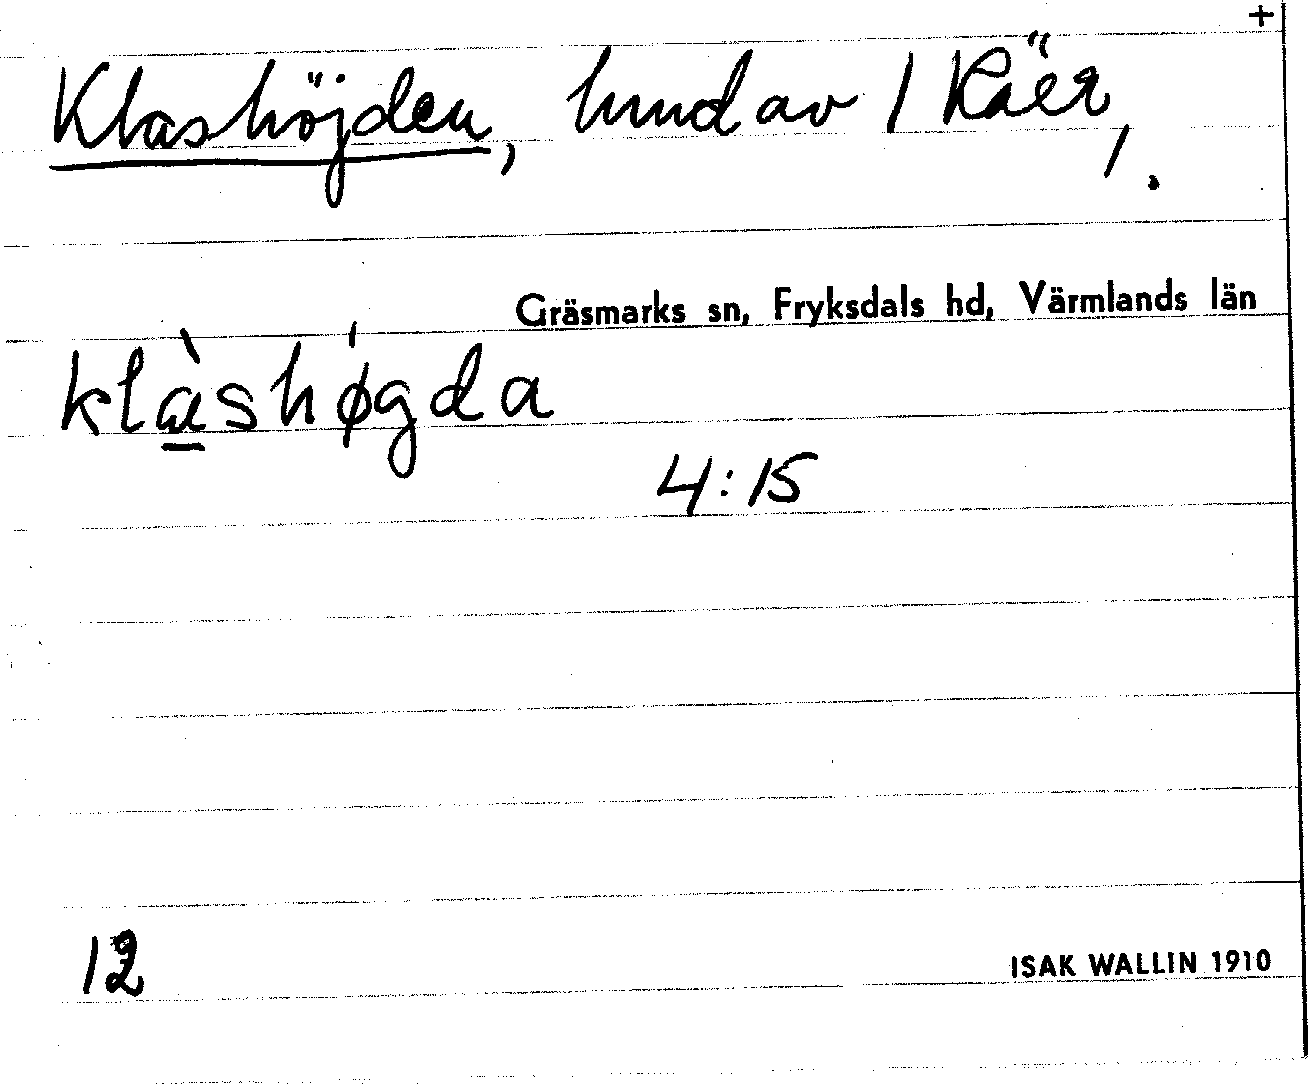 +
Klashöjden, hmd av 1 Räer, .
Gräsmarks sn, Fryksdals hd, Värmlands län
klàshǿgda
4:15
12
ISAK WALLIN 1910